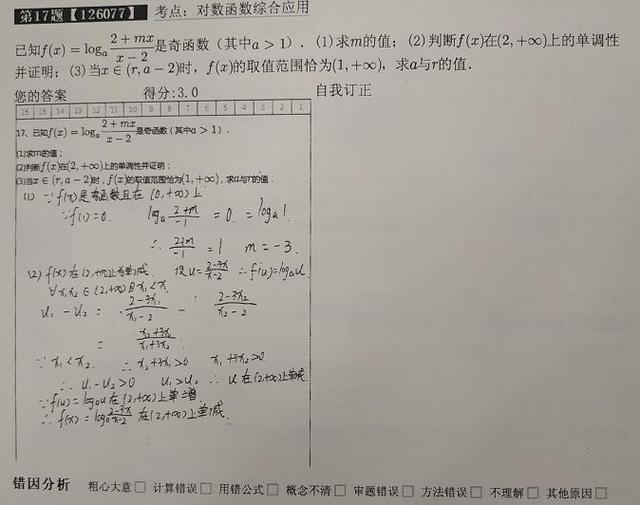 第17题【126077】 考点：对数函数综合应用
已知f(x)=logₐ (2+mx)/(x-2) 是奇函数（其中a>1）. (1)求m的值；(2)判断f(x)在(2,+∞)上的单调性
并证明；(3)当x∈(r,a-2)时，f(x)的取值范围恰为(1,+∞)，求a与r的值.
您的答案 得分:3.0 自我订正
16 15 14 13 12 11 10 9 8 7 6 5 4 3 2 1
17、已知f(x)=logₐ (2+mx)/(x-2) 是奇函数（其中a>1）.
(1)求m的值；
(2)判断f(x)在(2,+∞)上的单调性并证明；
(3)当x∈(r,a-2)时，f(x)的取值范围恰为(1,+∞)，求a与r的值.
(1) ∵f(x)是奇函数且在(0,+∞)上
∴f(1)=0. logₐ (2+m)/(-1) = 0. = logₐ1
∴ (2+m)/(-1) = 1 m=-3.
(2) f(x)在(2,+∞)上单减. 设u=(2-3x)/(x-2) ∴f(u)=logₐu
∀x₁x₂∈(2,+∞)且x₁<x₂
u₁-u₂ = (2-3x₁)/(x₁-2) - (2-3x₂)/(x₂-2)
= (x₂+3x₁)/(x₁+3x₂)
∵x₁<x₂ ∴x₂+3x₁>0 x₁+3x₂>0
∴u₁-u₂>0 u₁>u₂ ∴u在(2,+∞)上单减
∵f(u)=logₐu在(2,+∞)上单增
∴f(x)=logₐ (2-3x)/(x-2) 在(2,+∞)上单减.
错因分析 粗心大意□ 计算错误□ 用错公式□ 概念不清□ 审题错误□ 方法错误□ 不理解□ 其他原因□